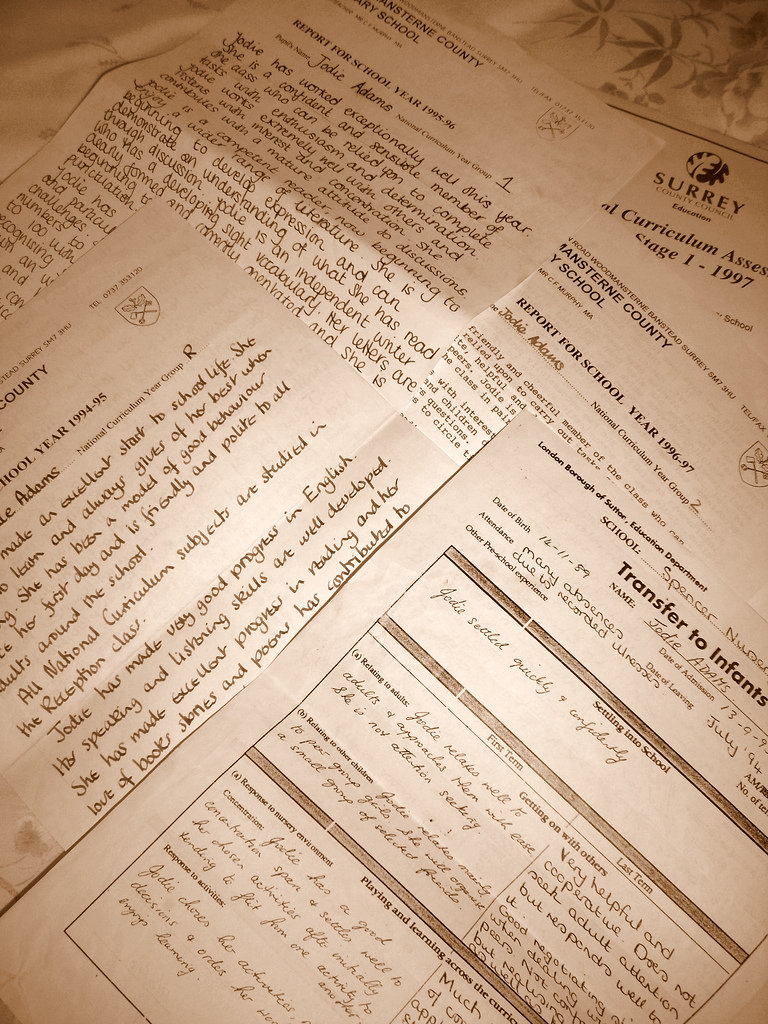 WOODMANSTERNE BANSTEAD SURREY SM7 3HU
MANSTERNE COUNTY
ARY SCHOOL
MR C F MURPHY MA
REPORT FOR SCHOOL YEAR 1995-96
Pupil's Name Jodie Adams National Curriculum Year Group 1
Jodie has worked exceptionally well this year.
She is a confident and sensible member of
the class who can be relied upon to complete
tasks with enthusiasm and determination
Jodie works extremely well with others and
listens with interest and concentration. She
contributes with a mature attitude to discussions.
Jodie is a competent reader now beginning to
enjoy a wider range
beginning to develop expression and can
demonstrate an understanding of what she has read
through discussion. Jodie is an independent writer
who has a developing sight vocabulary. Her letters are
clearly formed and
beginning to
punctuation
Jodie has
and
numbers to
challenges
to 100
recognising
SURREY
COUNTY COUNCIL
Education
al Curriculum Asses
Stage 1 - 1997
School
ROAD WOODMANSTERNE BANSTEAD SURREY SM7 3HU
MANSTERNE COUNTY
Y SCHOOL
MR C F MURPHY MA
TEL/FAX
REPORT FOR SCHOOL YEAR 1996-97
Jodie Adams National Curriculum Year Group 2
friendly and cheerful member of the class who can
relied upon to carry out
ite, helpful and
peers. Jodie is
he class in pa
with interest
and children
s questions.
s to circle t
STEAD SURREY SM7 3HU TEL 0737 353120
COUNTY
HOOL YEAR 1994-95
ie Adams National Curriculum Year Group R
made an excellent start to school life. She
to learn and always gives of her best when
ng. She has been a model of good behaviour
ce her first day and is friendly and polite to all
adults around the school.
All National Curriculum subjects are studied in
the Reception class.
Jodie has made very good progress in English.
Her speaking and listening skills are well developed.
She has made excellent progress in reading and her
love of books stories and poems has contributed to
London Borough of Sutton, Education Department
SCHOOL: Spencer Nurse
Transfer to Infants
NAME: Jodie ADAMS
Date of Birth 14-11-89
Date of Admission 13.9.9
Attendance many absences
due to recorded illnesses
Date of Leaving July '94
Other Pre-school experience
Settling into School
Jodie settled quickly & confidently
Getting on with others
First Term
Last Term
(a) Relating to adults: Jodie relates well to
adults & approaches them with ease
She is not attention seeking
(b) Relating to other children Jodie relates mainly
to peer group girls. She will organise
a small group of selected friends.
Very helpful and
cooperative. Does not
seek adult attention
but responds well to
it
Good negotiating ski
when dealing with
peers. Not
Playing and learning across the curric
(a) Response to nursery environment
Concentration: Jodie has a good
concentration span & settles well to
her chosen activities after initially
tending to flit from one activity to
another
Response to activities:
Jodie chooses her activities, makes
decisions & orders her wor
enjoys learning.
Much